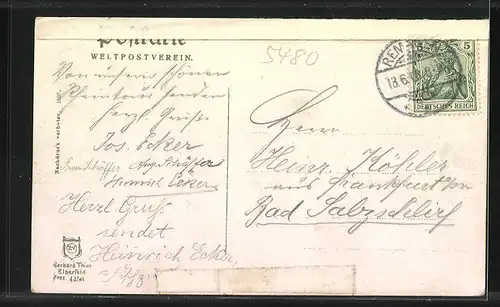 Postkarte
WELTPOSTVEREIN.
5480
REM
18.6.
5
DEUTSCHES REICH
Von unserer schönen
Rheintour senden
herzl. Grüße
Jos. Ecker
Heinrich Ecker
Herzl Gruß
sendet
Heinrich Ecker
Nachdruck verboten. 1907.
Gerhard Thien
Elberfeld
Herrn
Heinr. Köhler
aus Frankfurt
Bad Salzschlirf